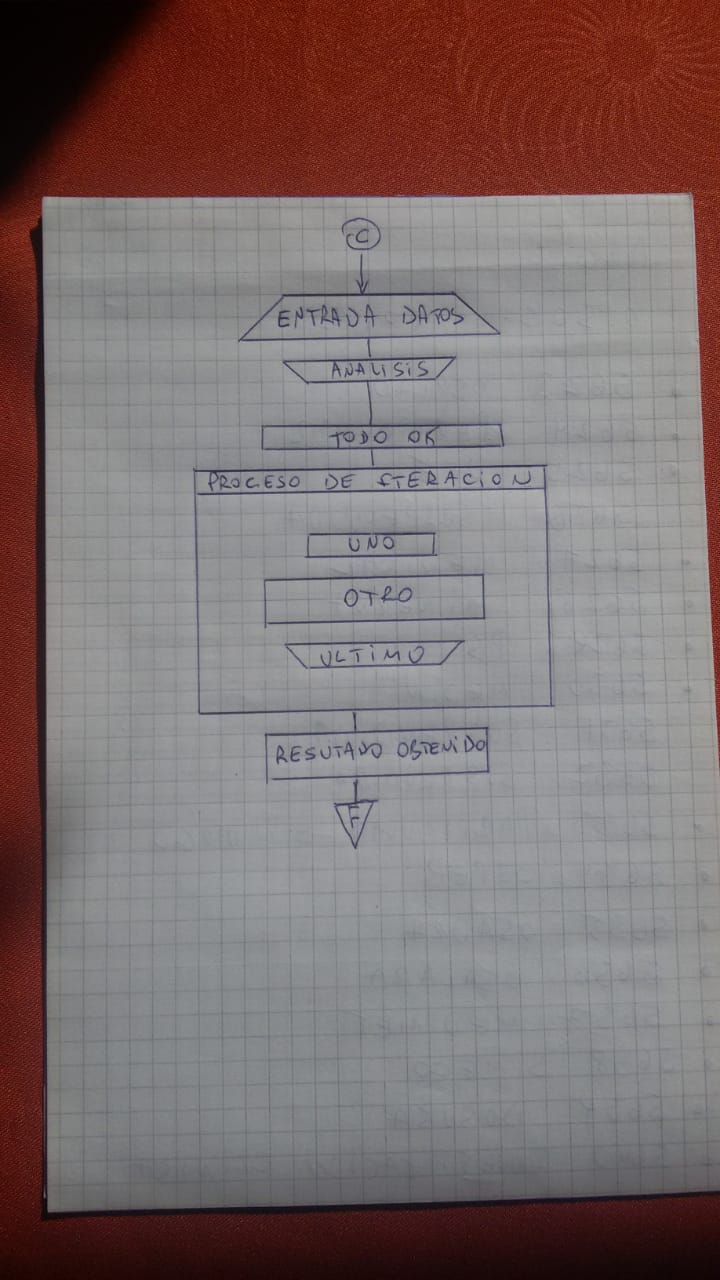 C
ENTRADA DATOS
ANALISIS
TODO OK
PROCESO DE ITERACION
UNO
OTRO
ULTIMO
RESUTADO OBTENIDO
F